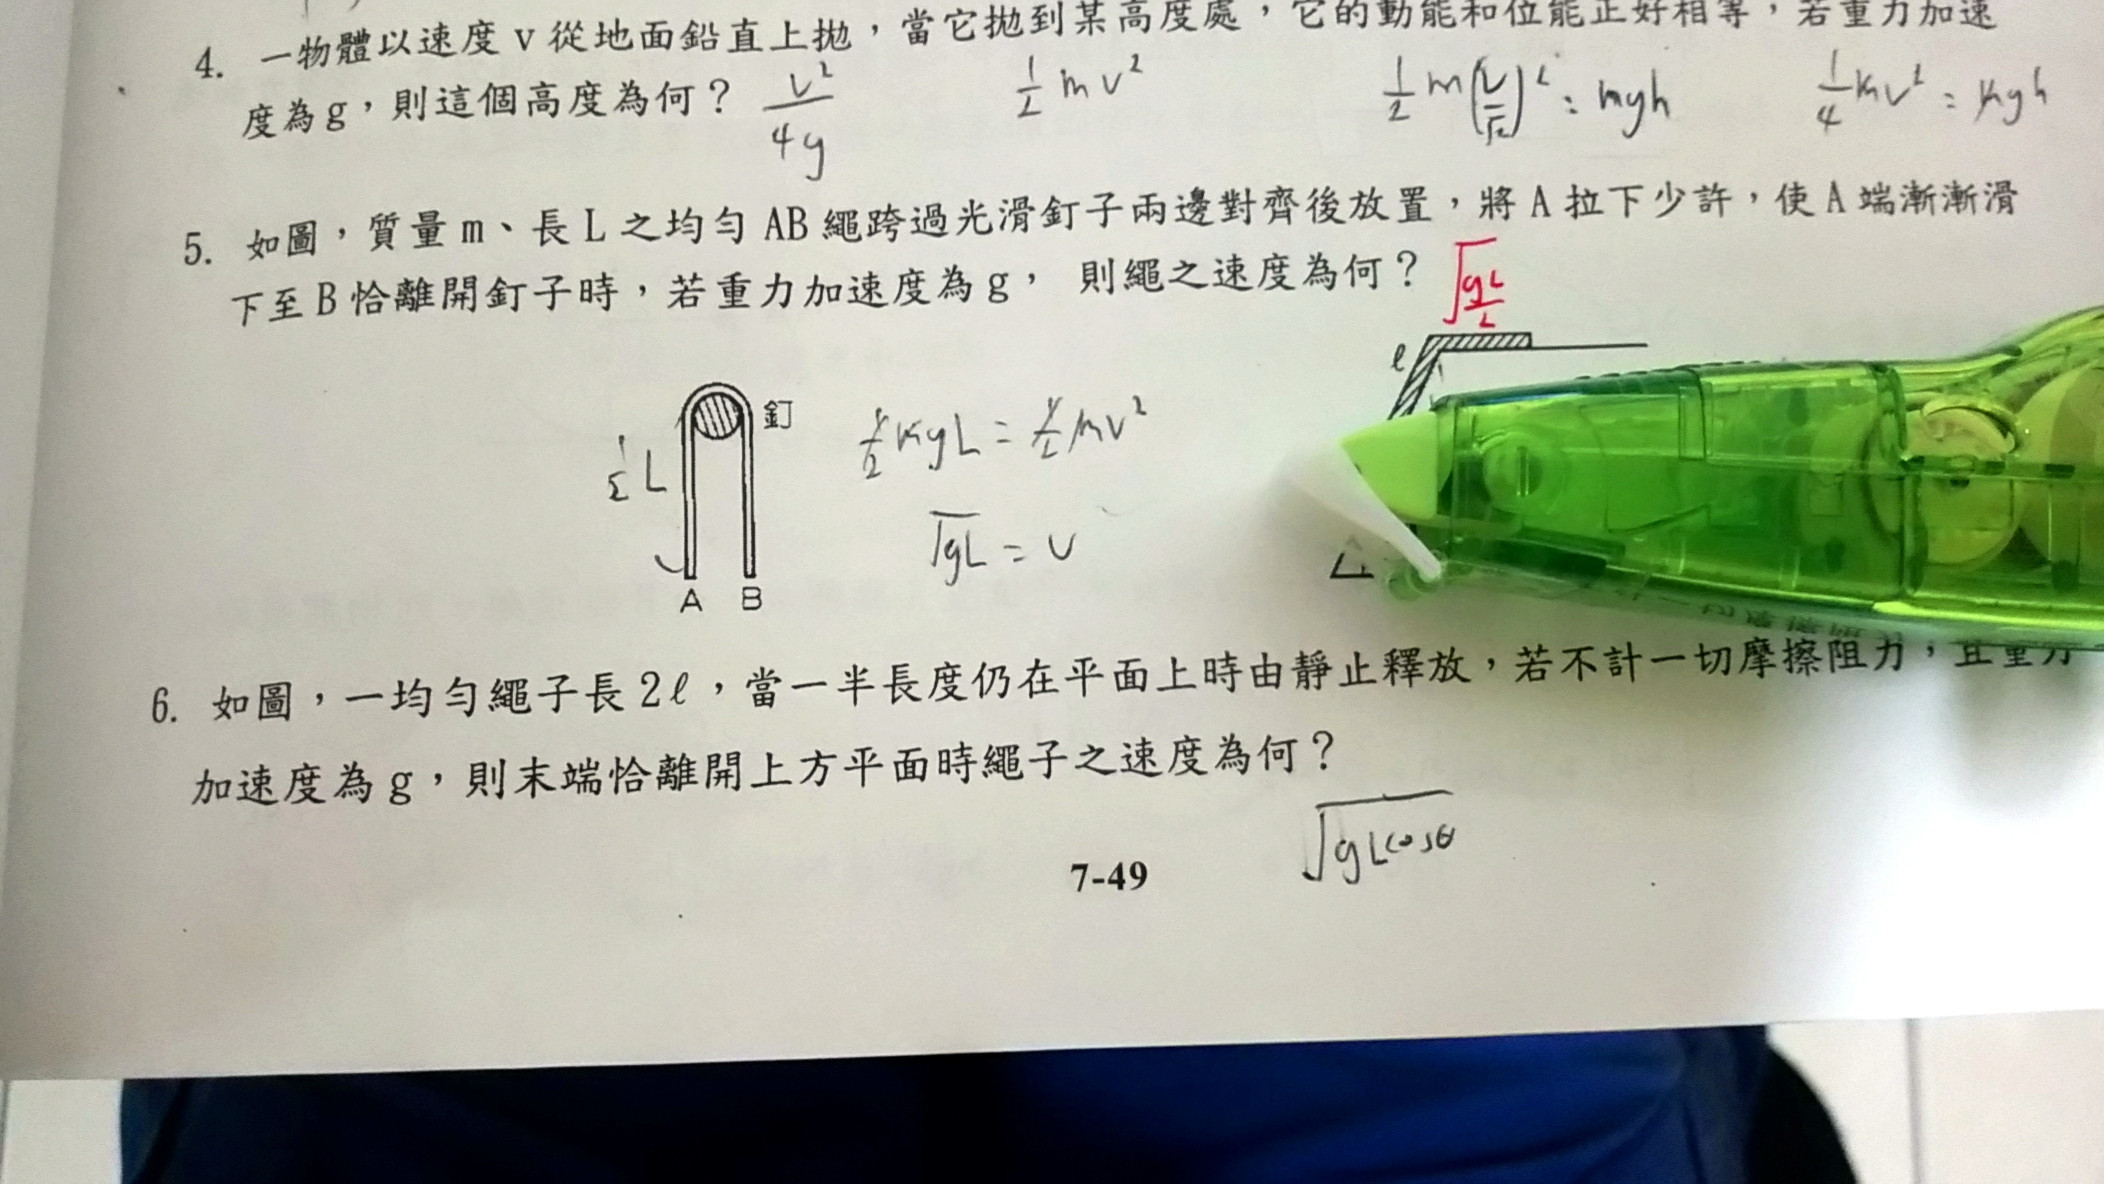 4. 一物體以速度 v 從地面鉛直上拋，當它拋到某高度處，它的動能和位能正好相等，若重力加速
度為 g，則這個高度為何？ v²/4g  1/2 m v²  1/2 m(v/√2)² = mgh  1/4 mv² = mgh
5. 如圖，質量 m、長 L 之均勻 AB 繩跨過光滑釘子兩邊對齊後放置，將 A 拉下少許，使 A 端漸漸滑
下至 B 恰離開釘子時，若重力加速度為 g， 則繩之速度為何？ √(gL/2)
ℓ
釘
1/2 L
1/2 mgL = 1/2 mv²
√gL = v
A B
6. 如圖，一均勻繩子長 2ℓ，當一半長度仍在平面上時由靜止釋放，若不計一切摩擦阻力，且重力
加速度為 g，則末端恰離開上方平面時繩子之速度為何？
√gLcosθ
7-49